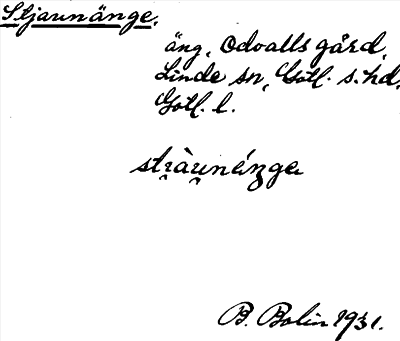 Stjaunänge.
äng, Odvalls gård,
Linde sn, Gotl. s. hd,
Gotl. l.
B. Bolin 1931.